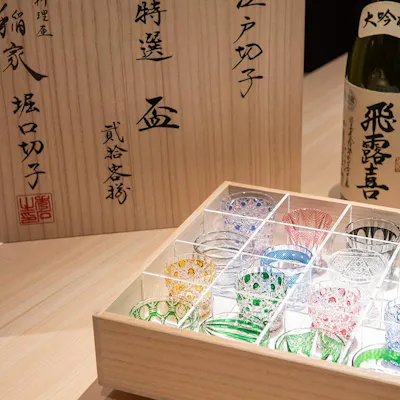 江戸切子
特選 盃
貳拾客揃
料理屋
稲家 堀口切子
大吟
飛露喜